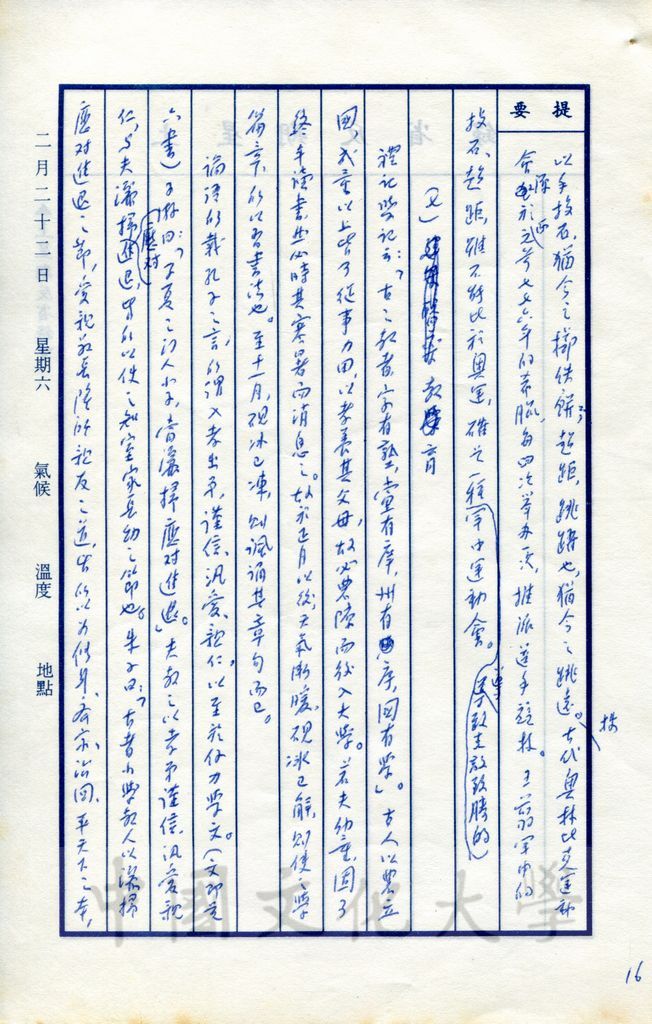 提要
以手投石,猶今之擲鉄餅;超距,跳躍也,猶今之跳遠。古代奧林比克運動
會源於西元前七七六年的希臘,每四年舉办一次,推派選手競技。王翦軍中的
投石、超距,雖不能比於奧運,確是一種軍中運動會。
(七)教育
禮記學記云:「古之教者,家有塾,黨有庠,州有序,國有學」。古人以農立
國,成童以上皆可從事力田,以孝養其父母,故必農隙而後入大學。若夫幼童,固可
終年讀書,然必時其寒暑而消息之。故於正月以後,天氣漸暖,硯冰已解,則使入學
篇章,所以習書法也。至十一月,硯冰已凍,則諷誦其章句而已。
論語所載孔子之言,所謂入孝出弟,謹信汎愛親仁,以至於行有餘力學文。(文即
六書)子游曰:「子夏之門人小子,當灑掃應對進退。」夫教之以孝弟謹信,汎愛親
仁,与夫灑掃應對進退,皆所以使之知室家長幼之節也。朱子曰:「古者小學教人以灑掃
應對進退之節,愛親敬長隆師親友之道,皆所以為修身、齊家、治國、平天下之本,
二月二十二日 星期六 氣候 溫度 地點
中國文化大學
16